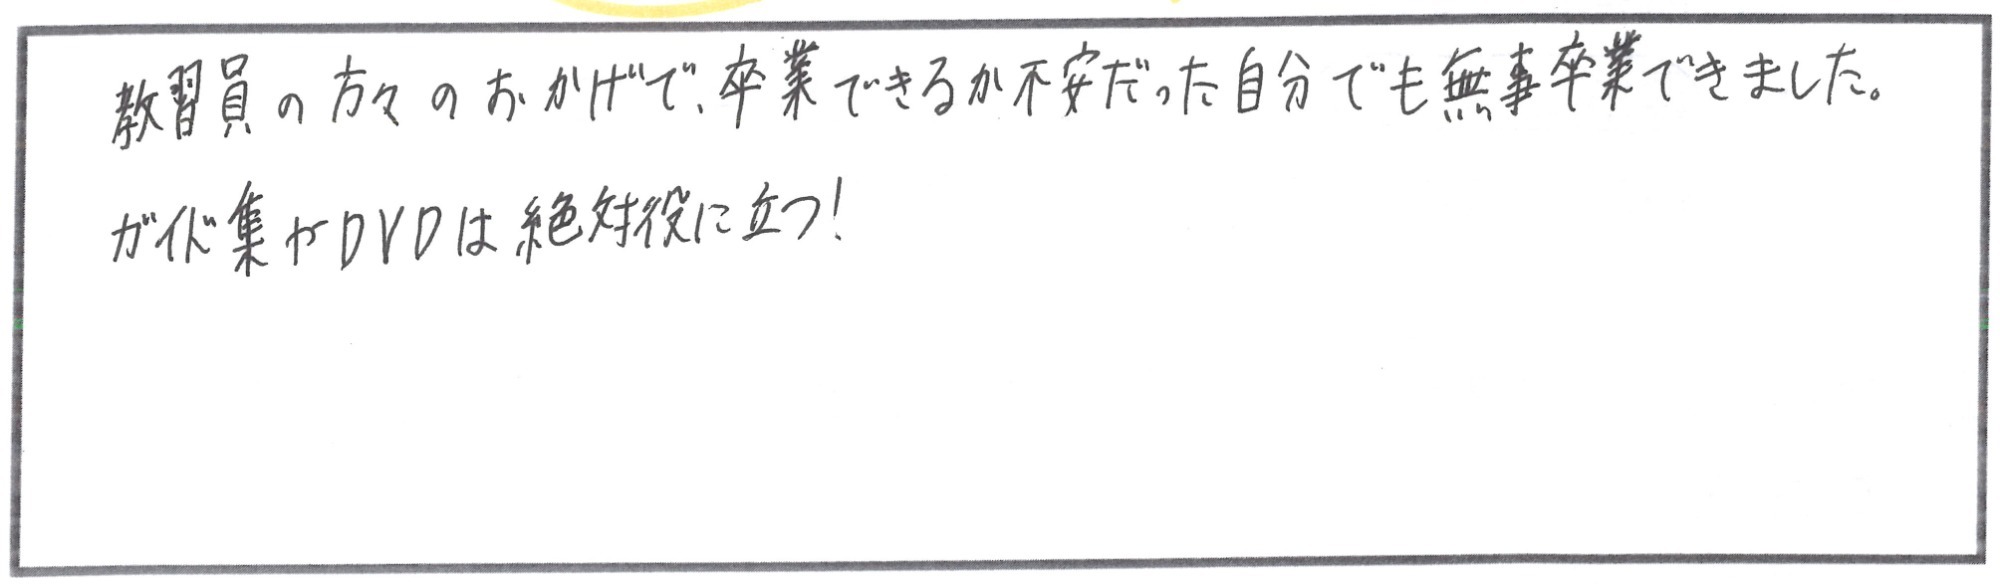 教習員の方々のおかげで、卒業できるか不安だった自分でも無事卒業できました。
ガイド集やDVDは絶対役に立つ!